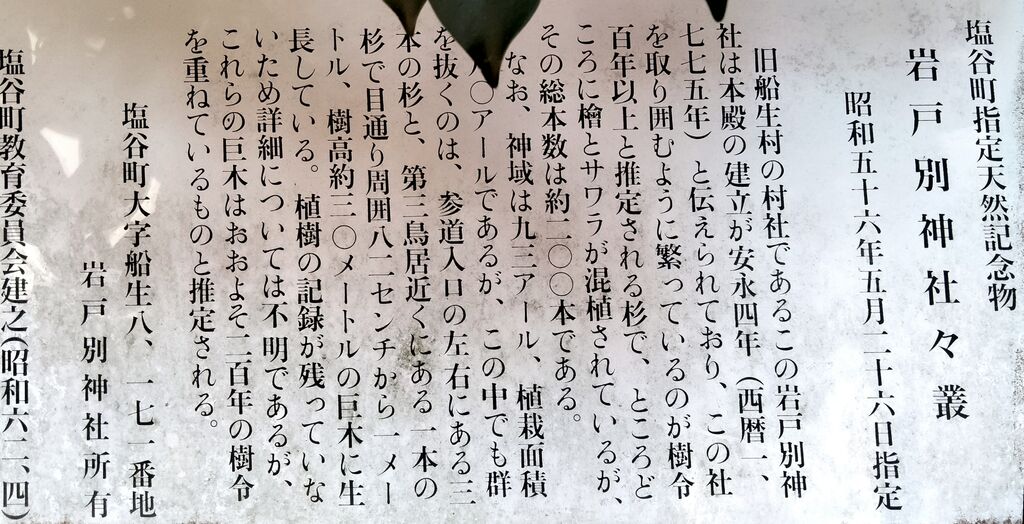 塩谷町指定天然記念物
岩戸別神社々叢
昭和五十六年五月二十六日指定
旧船生村の村社であるこの岩戸別神
社は本殿の建立が安永四年（西暦一、
七七五年）と伝えられており、この社
を取り囲むように繁っているのが樹令
百年以上と推定される杉で、ところど
ころに檜とサワラが混植されているが、
その総本数は約二〇〇本である。
なお、神域は九三アール、植栽面積
〇アールであるが、この中でも群
を抜くのは、参道入口の左右にある三
本の杉と、第三鳥居近くにある一本の
杉で目通り周囲八二センチから一メー
トル、樹高約三〇メートルの巨木に生
長している。植樹の記録が残っていな
いため詳細については不明であるが、
これらの巨木はおおよそ二百年の樹令
を重ねているものと推定される。
塩谷町大字船生八、一七一番地
岩戸別神社所有
塩谷町教育委員会建之(昭和六二、四)